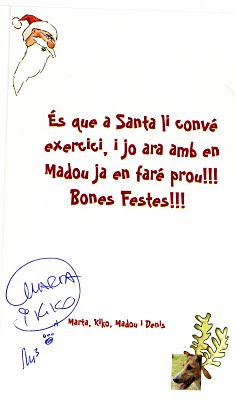 És que a Santa li convé
exercici, i jo ara amb en
Madou ja en faré prou!!!
Bones Festes!!!
MARTA
i KIKO
Marta, Kiko, Madou i Denis